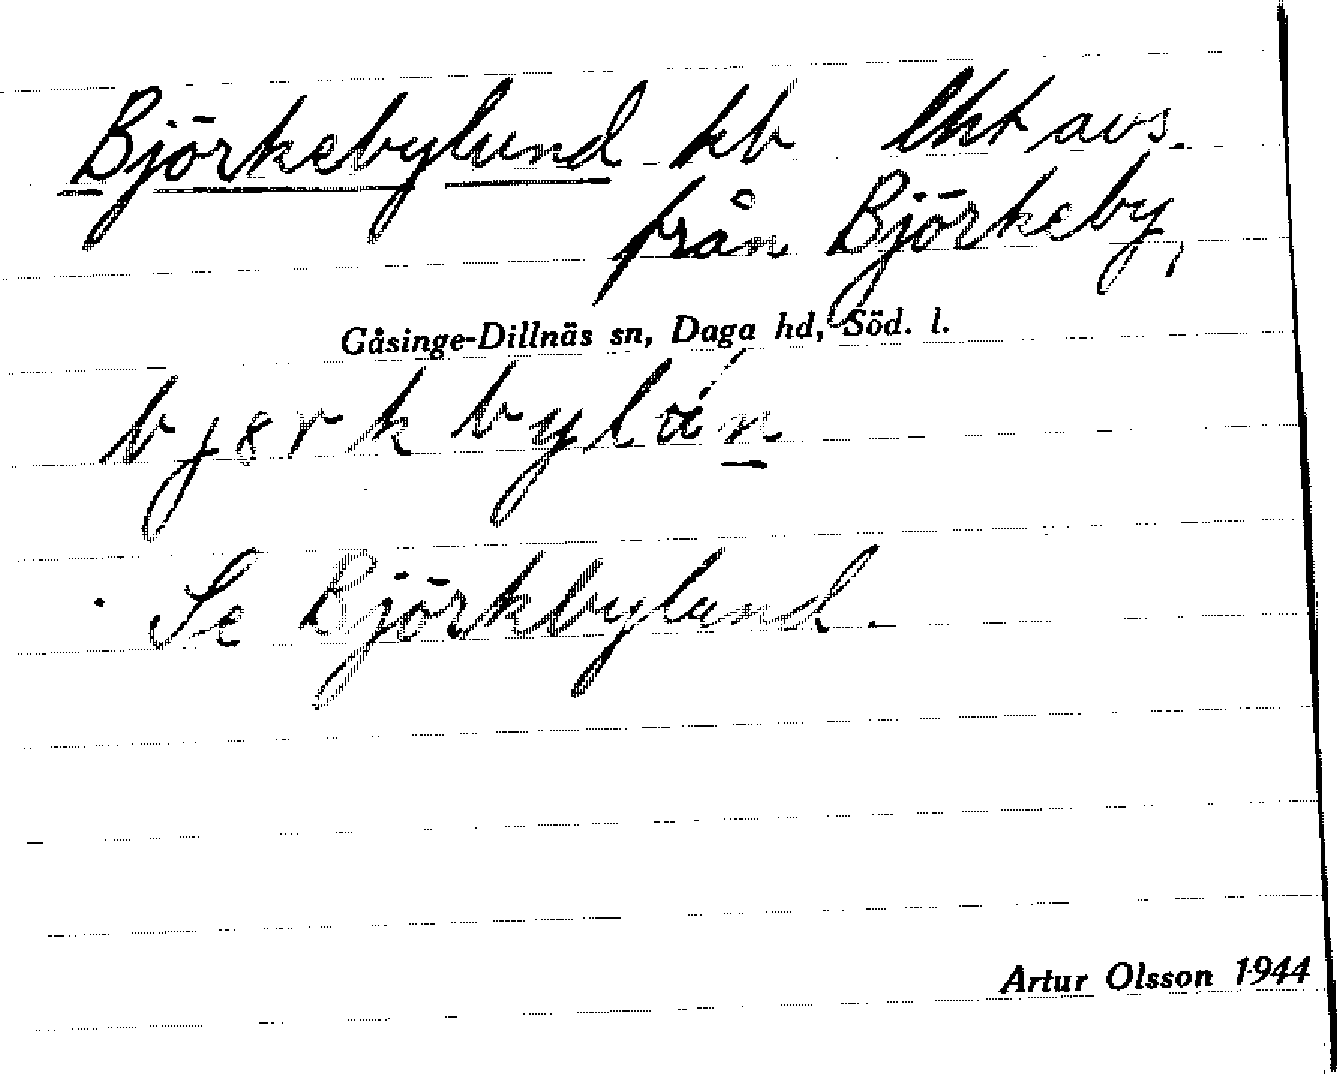 Björkebylund kb lht avs.
från Björkeby,
Gåsinge-Dillnäs sn, Daga hd, Söd. l.
Se Björkbylund.
Artur Olsson 1944